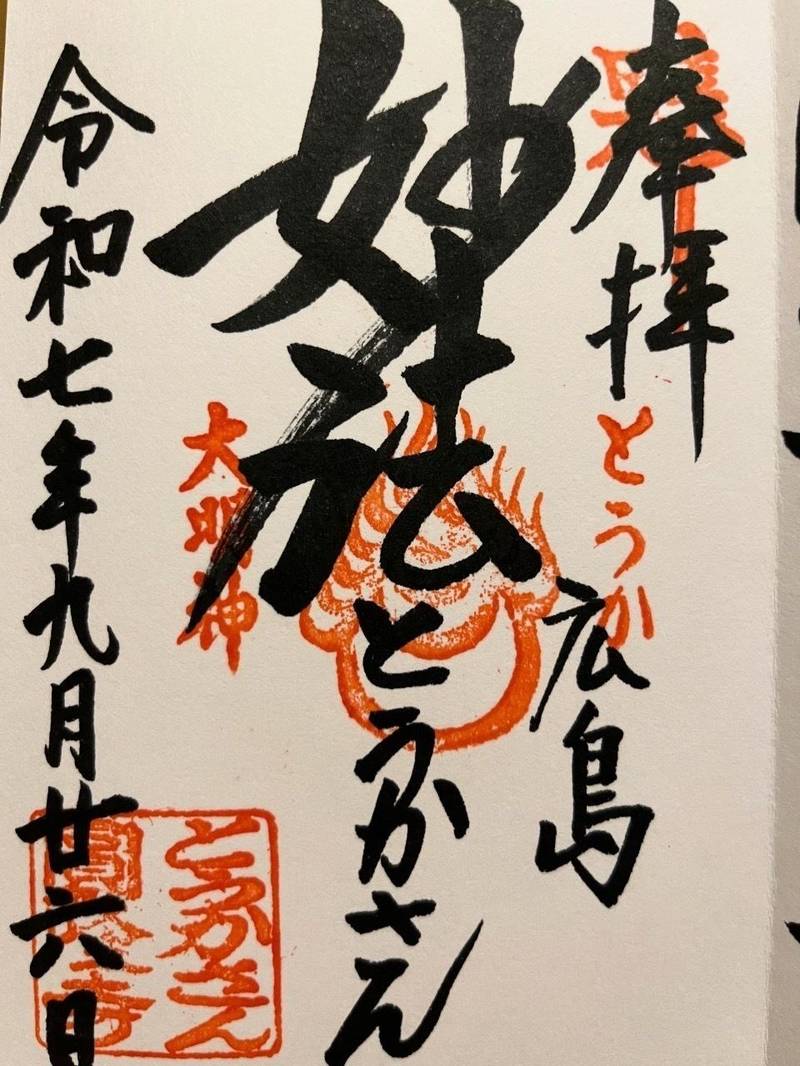 奉拝
とうか
広島
妙法
とうかさん
大明神
令和七年九月廿六日
とうかさん
圓隆寺